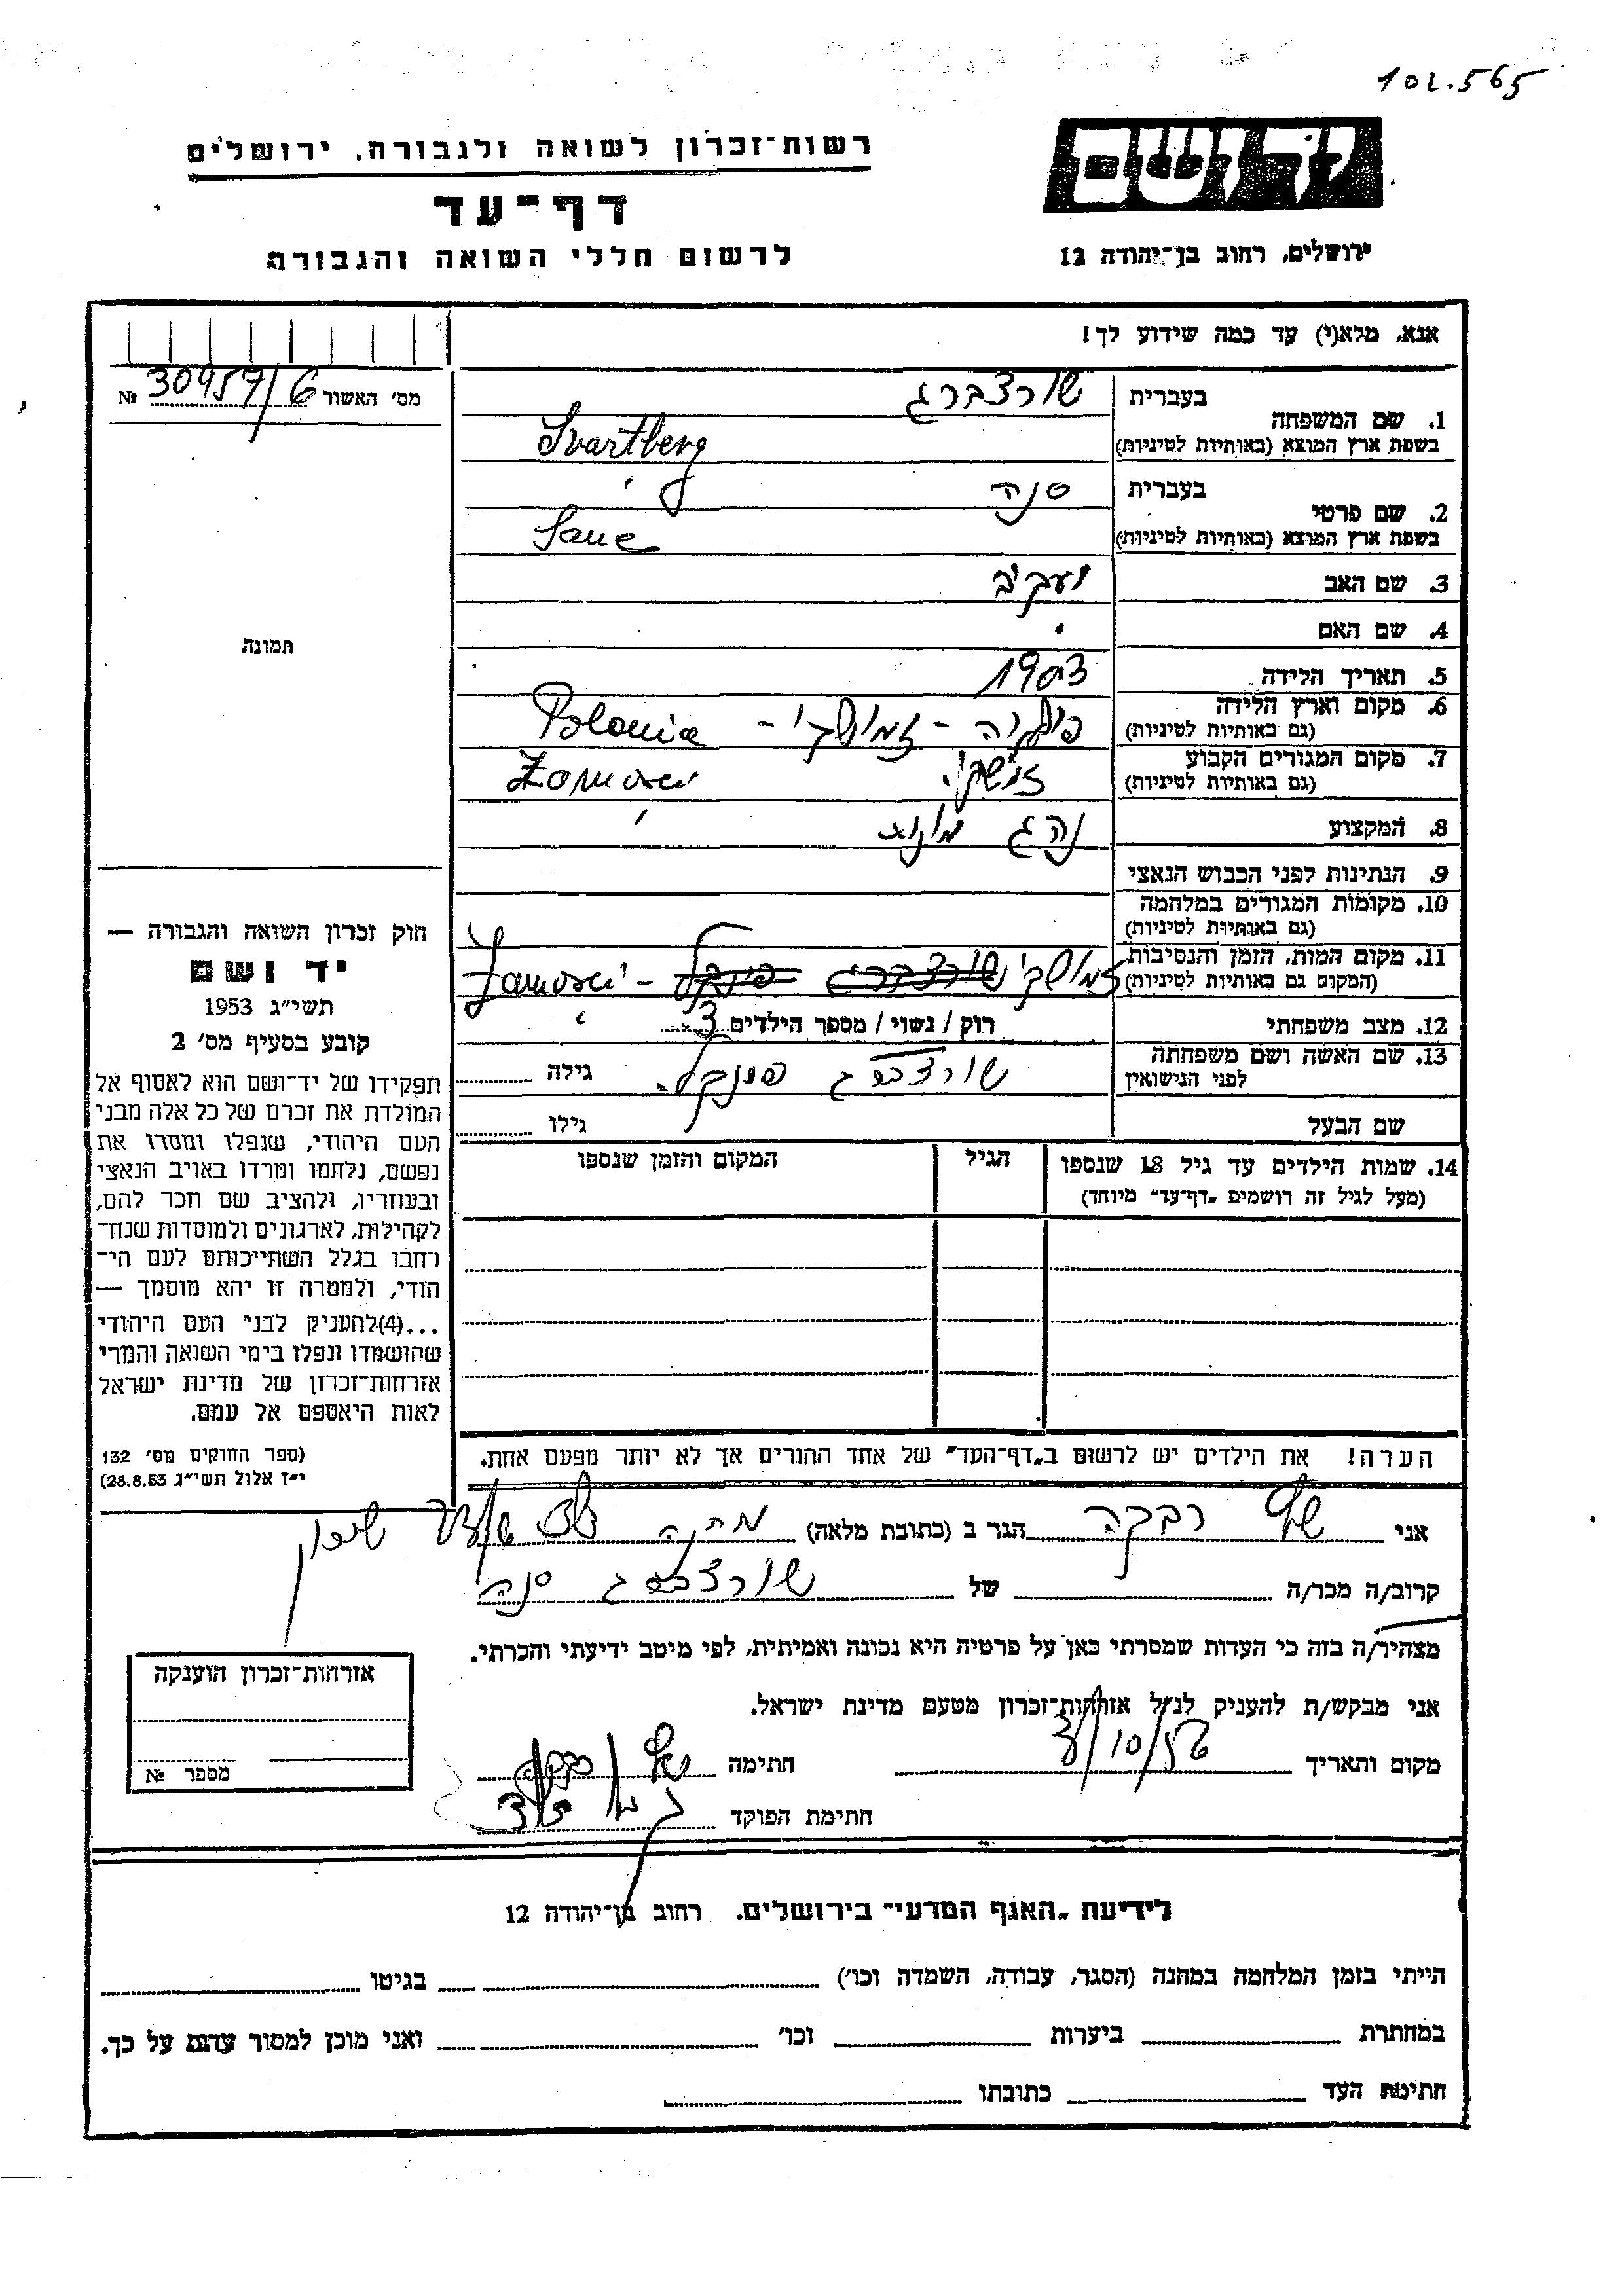 102.565
יד ושם
ירושלים, רחוב בן־יהודה 12
רשות־זכרון לשואה ולגבורה, ירושלים
דף־עד
לרשום חללי השואה והגבורה
אנא, מלא(י) עד כמה שידוע לך!
מס׳ האשור 30957/6 №
תמונה
1. שם המשפחה
בעברית שורצברג
בשפת ארץ המוצא (באותיות לטיניות) Svartberg
2. שם פרטי
בעברית סנה
בשפת ארץ המוצא (באותיות לטיניות) Sane
3. שם האב יעקב
4. שם האם
5. תאריך הלידה 1903
6. מקום וארץ הלידה
(גם באותיות לטיניות) Polonia
7. מקום המגורים הקבוע
(גם באותיות לטיניות)
8. המקצוע נהג
9. הנתינות לפני הכבוש הנאצי
10. מקומות המגורים במלחמה
(גם באותיות לטיניות)
11. מקום המות, הזמן והנסיבות
(המקום גם באותיות לטיניות)
12. מצב משפחתי רוק / נשוי / מספר הילדים 3
13. שם האשה ושם משפחתה
לפני הנישואין שורצברג גילה
שם הבעל גילו
14. שמות הילדים עד גיל 18 שנספו
(מעל לגיל זה רושמים „דף־עד״ מיוחד)
הגיל
המקום והזמן שנספו
הערה! את הילדים יש לרשום ב„דף־העד״ של אחד ההורים אך לא יותר מפעם אחת.
חוק זכרון השואה והגבורה —
יד ושם
תשי״ג 1953
קובע בסעיף מס׳ 2
תפקידו של יד־ושם הוא לאסוף אל
המולדת את זכרם של כל אלה מבני
העם היהודי, שנפלו ומסרו את
נפשם, נלחמו ומרדו באויב הנאצי
ובעוזריו, ולהציב שם וזכר להם,
לקהילות, לארגונים ולמוסדות שנח־
רחבו בגלל השתייכותם לעם הי־
הודי, ולמטרה זו יהא מוסמך —
...(4)להעניק לבני העם היהודי
שהושמדו ונפלו בימי השואה והמרי
אזרחות־זכרון של מדינת ישראל
לאות היאספם אל עמם.
(ספר החוקים מס׳ 132
י״ז אלול תשי״ג 28.8.53)
אני רבקה הגר ב (כתובת מלאה)
קרוב/ה מכר/ה של שורצברג סנה
מצהיר/ה בזה כי העדות שמסרתי כאן על פרטיה היא נכונה ואמיתית, לפי מיטב ידיעתי והכרתי.
אני מבקש/ת להעניק לנ״ל אזרחות־זכרון מטעם מדינת ישראל.
מקום ותאריך חתימה
חתימת הפוקד
אזרחות־זכרון הוענקה
מספר №
לידיעת „האגף המדעי״ בירושלים. רחוב בן־יהודה 12
הייתי בזמן המלחמה במחנה (הסגר, עבודה, השמדה וכו׳) בגיטו
במחתרת ביערות וכו׳ ואני מוכן למסור עדות על כך.
חתימת העד כתובתו